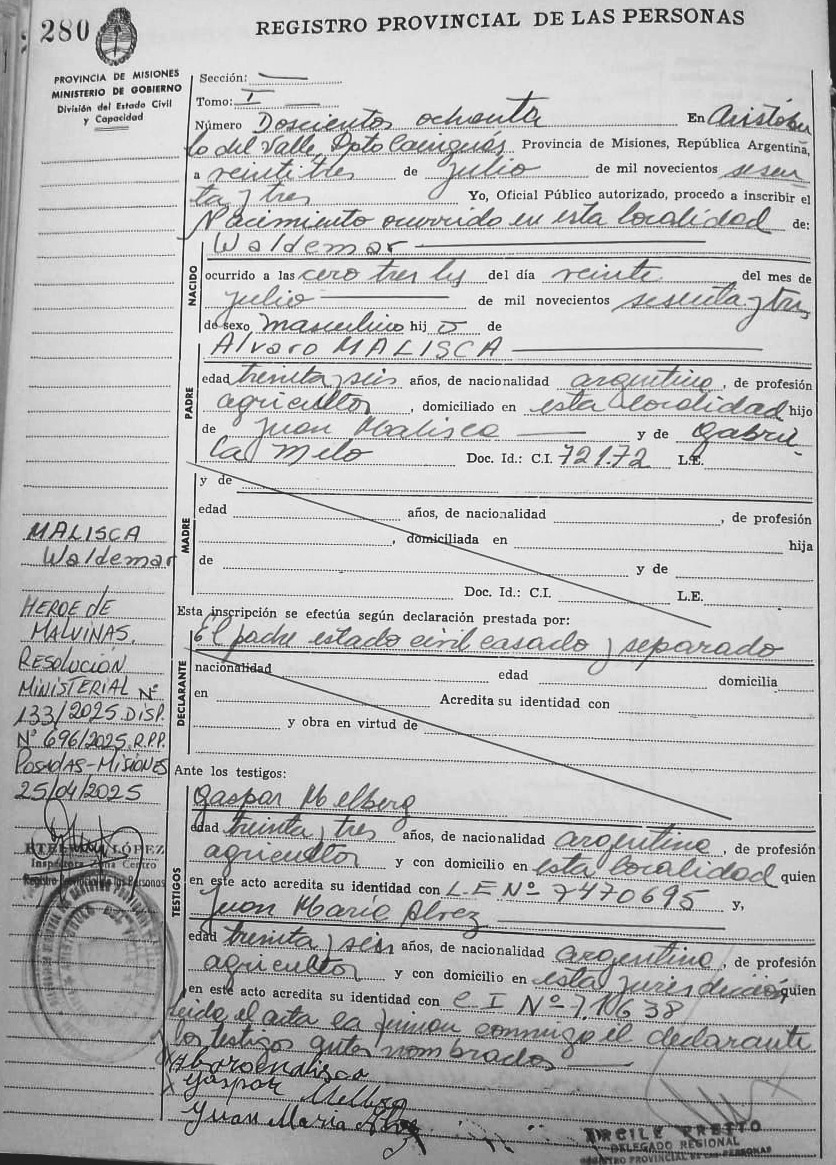 280
REGISTRO PROVINCIAL DE LAS PERSONAS
PROVINCIA DE MISIONES
MINISTERIO DE GOBIERNO
División del Estado Civil
y Capacidad
Sección:
Tomo: I
Número Doscientos ochenta En Aristóbu
lo del Valle, Dpto Cainguás Provincia de Misiones, República Argentina,
a veintitres de julio de mil novecientos sesen
ta y tres Yo, Oficial Público autorizado, procedo a inscribir el
Nacimiento ocurrido en esta localidad de:
NACIDO
Waldemar
ocurrido a las cero tres hs del día veinte del mes de
julio de mil novecientos sesenta y tres
de sexo masculino hij o de
Alvaro MALISCA
PADRE
edad treinta y seis años, de nacionalidad argentina, de profesión
agricultor, domiciliado en esta localidad hijo
de Juan Malisca y de Gabrie
la Melo Doc. Id.: C.I. 72172 L.E.
MADRE
y de
edad años, de nacionalidad , de profesión
, domiciliada en hija
de y de
Doc. Id.: C.I. L.E.
Esta inscripción se efectúa según declaración prestada por:
DECLARANTE
El padre estado civil casado y separado
nacionalidad edad domicilia
en Acredita su identidad con
y obra en virtud de
MALISCA
Waldemar
HEROE de
MALVINAS.
RESOLUCIÓN
MINISTERIAL Nº
133/2025 DISP.
Nº 696/2025. R.P.P.
POSADAS-MISIONES
25/04/2025
LÓPEZ
Inspectora Zona Centro
Registro Provincial de las Personas
Ante los testigos:
TESTIGOS
Gaspar Melberg
edad treinta y tres años, de nacionalidad argentina, de profesión
agricultor y con domicilio en esta localidad quien
en este acto acredita su identidad con L.E Nº 7470695 y,
Juan María Alvez
edad treinta y seis años, de nacionalidad argentina, de profesión
agricultor y con domicilio en esta jurisdicción quien
en este acto acredita su identidad con C I Nº 7,10638
leida el acta la firman conmigo el declarante
los testigos antes nombrados
Gaspar Melberg
Juan Maria Alvez
PRETTO
DELEGADO REGIONAL
REGISTRO PROVINCIAL DE LAS PERSONAS